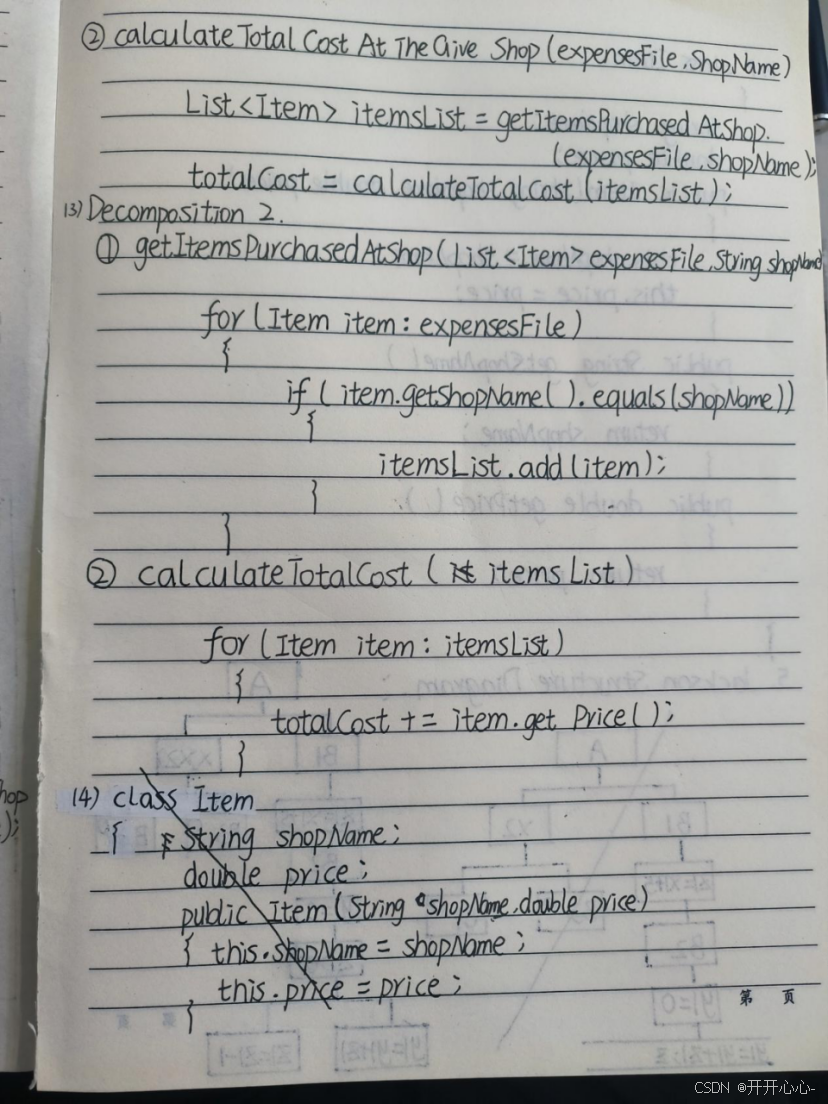 ② calculateTotal Cost At The Give Shop (expensesFile, ShopName)
List<Item> itemsList = getItemsPurchased AtShop.
(expensesFile, shopName);
totalCost = calculateTotalCost (itemsList);
(3) Decomposition 2.
① getItemsPurchasedAtShop(List<Item> expensesFile, String shopName)
for (Item item : expensesFile)
{
if ( item.getShopName( ).equals(shopName))
{
itemsList.add(item);
}
}
② calculateTotalCost ( itemsList)
for (Item item : itemsList)
{
totalCost += item.get Price();
}
(4) class Item
{ String shopName;
double price;
public Item(String shopName, double price)
{ this.shopName = shopName;
this.price = price;
}
第 页
CSDN @开开心心-